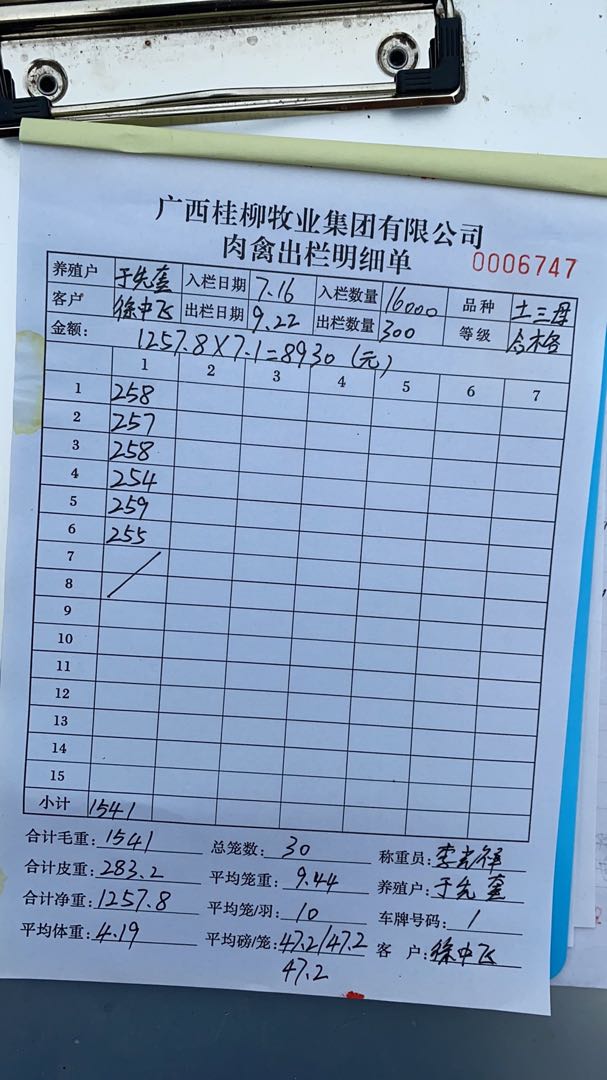 广西桂柳牧业集团有限公司
肉禽出栏明细单 0006747
养殖户 于先奎 入栏日期 7.16 入栏数量 16000 品种 土三母
客户 徐中飞 出栏日期 9.22 出栏数量 300 等级 合格
金额: 1257.8×7.1=8930(元)
1 2 3 4 5 6 7
1 258
2 257
3 258
4 254
5 259
6 255
7
8
9
10
11
12
13
14
15
小计 1541
合计毛重: 1541 总笼数: 30 称重员: 李光祥
合计皮重: 283.2 平均笼重: 9.44 养殖户: 于先奎
合计净重: 1257.8 平均笼/羽: 10 车牌号码: /
平均体重: 4.19 平均磅/笼: 47.2/47.2 客户: 徐中飞
47.2